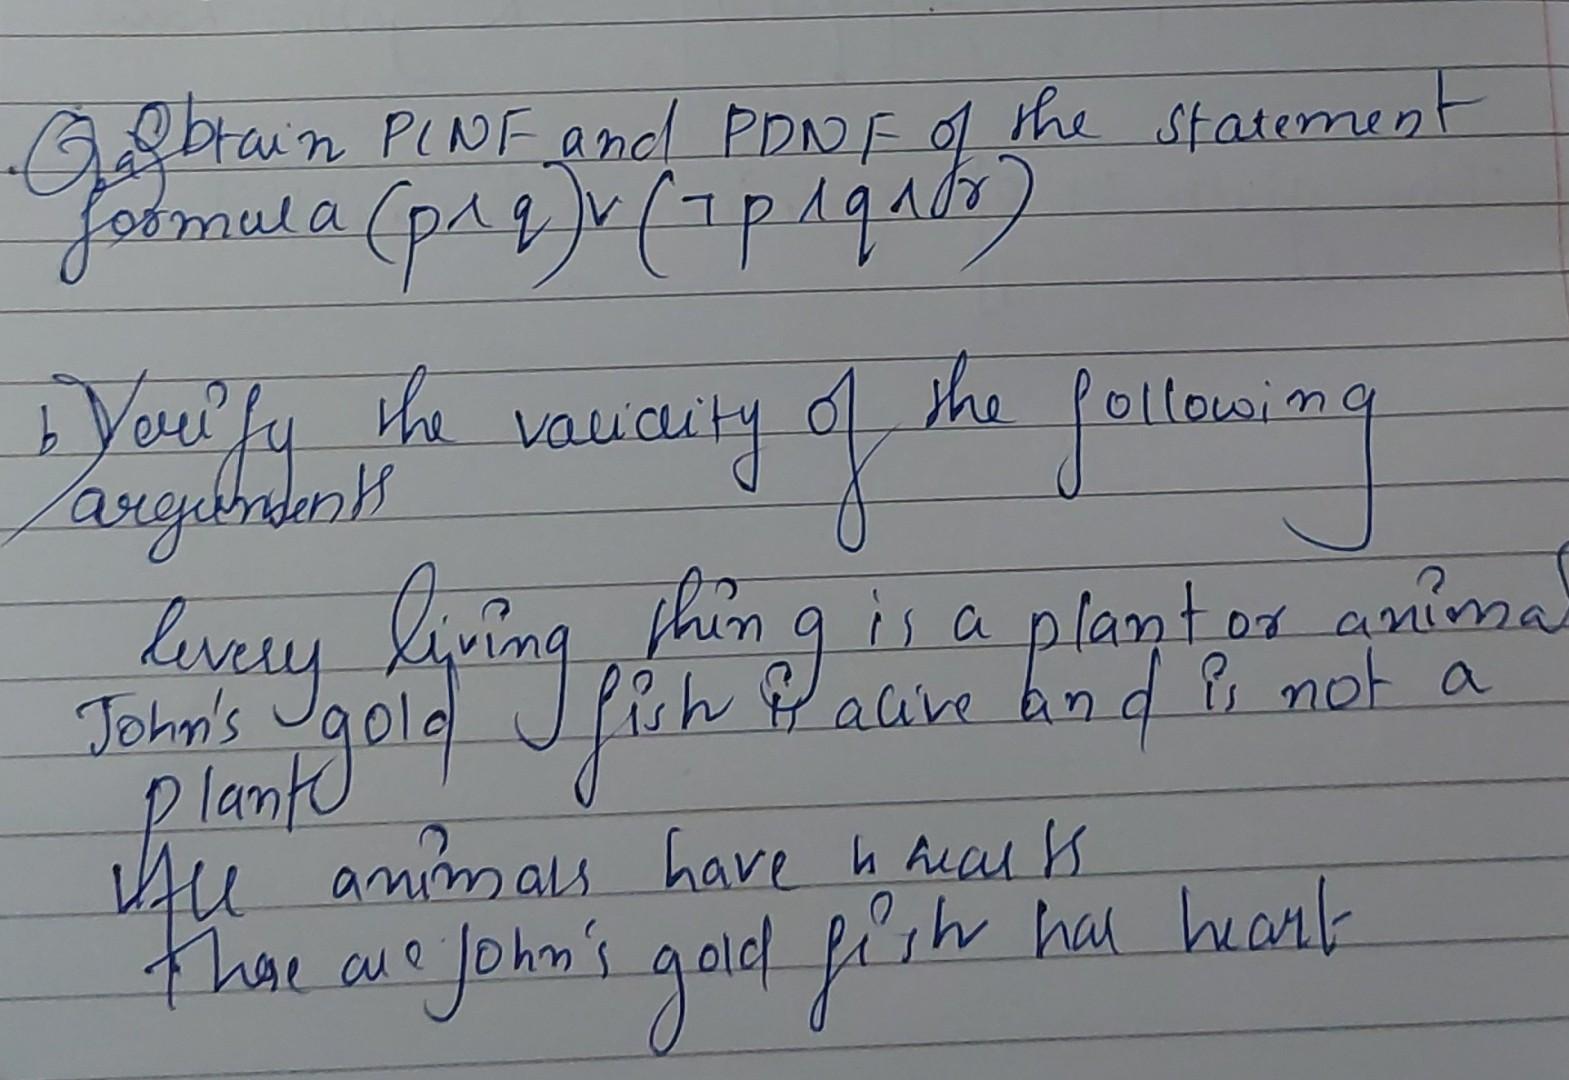 Q. a) Obtain PCNF and PDNF of the statement
formula (p∧q)∨(¬p∧q∧r)
b) Verify the validity of the following
arguments
Every living thing is a plant or animal
John's gold fish is alive and is not a
plant
All animals have hearts
There are John's gold fish has heart